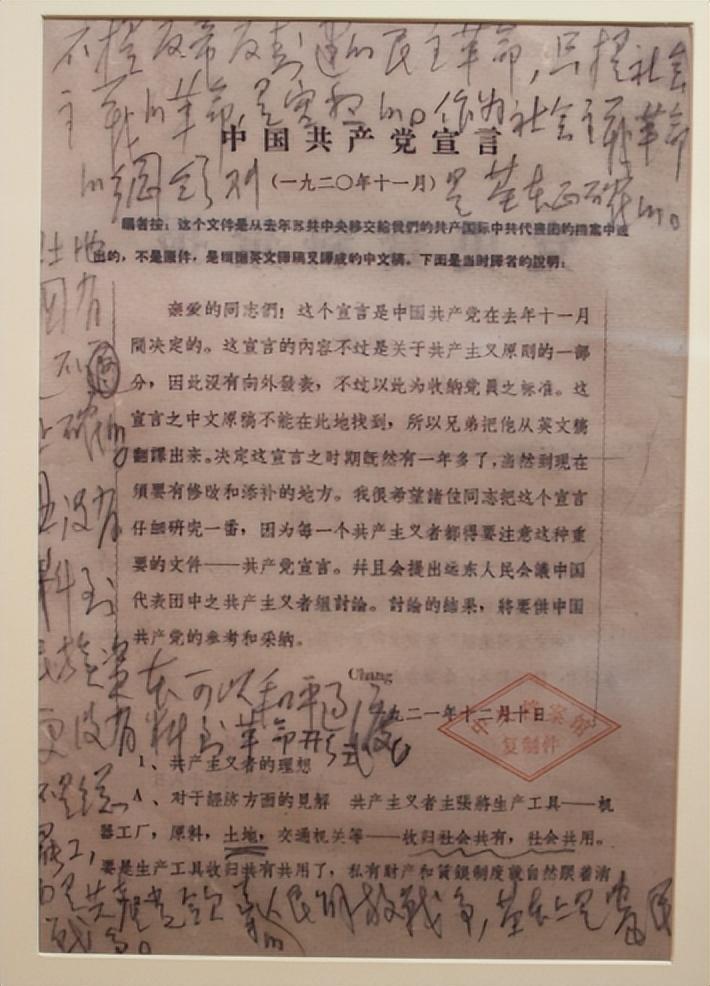 不提反帝反封建的民主革命,只提社会
主义的革命,是空想的。作为社会主义革命
的纲领则是基本正确的。
中国共产党宣言
(一九二〇年十一月)
編者按:这个文件是从去年苏共中央移交給我們的共产国际中共代表团的档案中选
出的,不是原件,是根据英文譯稿又譯成的中文稿。下面是当时譯者的說明:
亲爱的同志們!这个宣言是中国共产党在去年十一月
間决定的。这宣言的內容不过是关于共产主义原則的一部
分,因此沒有向外發表,不过以此为收納党員之标准。这
宣言之中文原稿不能在此地找到,所以兄弟把他从英文稿
翻譯出来。决定这宣言之时期既然有一年多了,当然到現在
須要有修改和添补的地方。我很希望諸位同志把这个宣言
仔細研究一番,因为每一个共产主义者都得要注意这种重
要的文件——共产党宣言。幷且会提出远东人民会議中国
代表团中之共产主义者組討論。討論的結果,將要供中国
共产党的参考和采納。
Chang
一九二一年十二月十日
中央档案館
复制件
1、共产主义者的理想
A、对于經济方面的見解　共产主义者主張將生产工具——机
器工厂,原料,土地,交通机关等——收归社会共有,社会共用。
要是生产工具收归共有共用了,私有財产和賃銀制度就自然跟着消
土地
国有
不
正确的
且没有
料到
民族资本可以和平过渡
更没有料到革命形式
不是总
罢工,
而是共产党领导的人民解放战争,基本上是农民
战争。